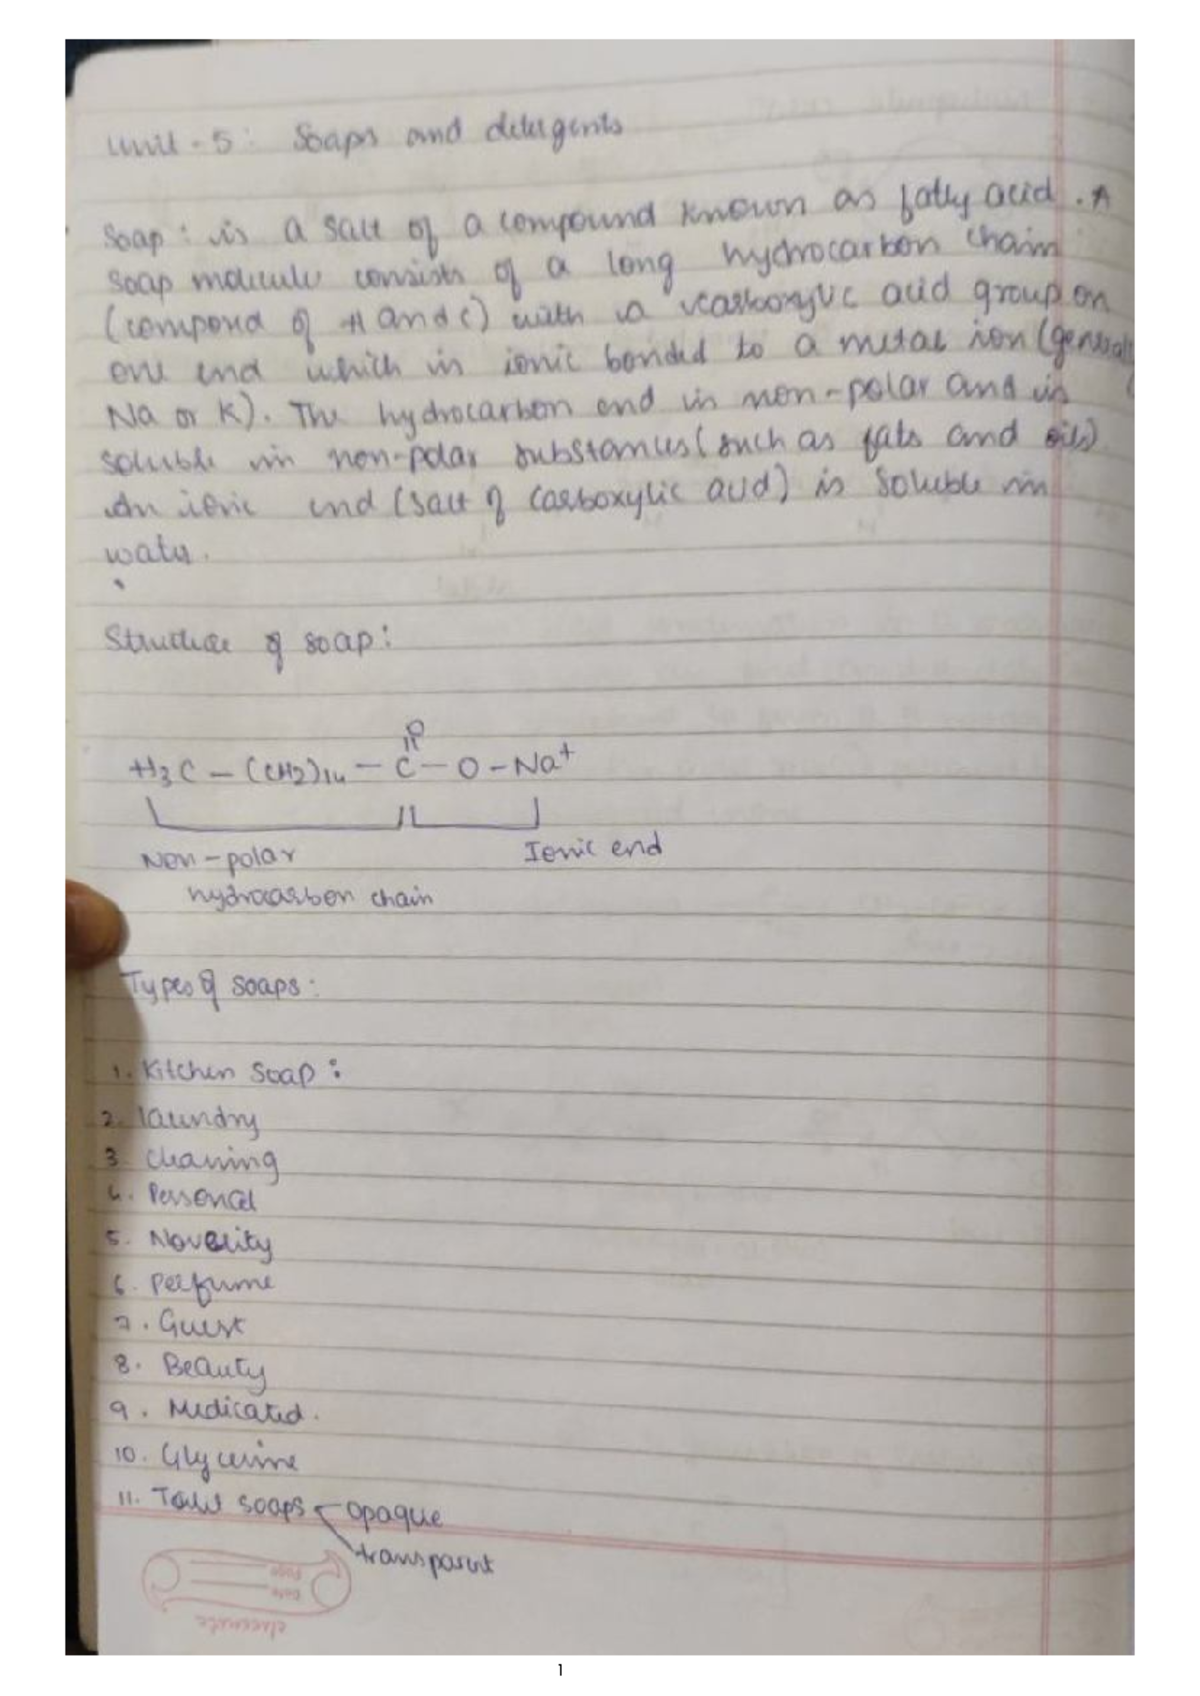 Unit - 5 : Soaps and detergents
Soap : is a salt of a compound known as fatty acid . A
soap molecule consists of a long hydrocarbon chain
(compond of H and C) with a carboxylic acid group on
one end which is ionic bonded to a metal ion (generally
Na or K). The hydrocarbon end is non-polar and is
soluble in non-polar substances (such as fats and oils)
An ionic end (salt of carboxylic acid) is soluble in
water.
Structure of soap :
O
||
H3C – (CH2)14 – C – O – Na+
Non-polar Ionic end
hydrocarbon chain
Types of soaps :
1. Kitchen Soap :
2. laundry
3. cleaning
4. Personal
5. Noverity
6. Perfume
7. Guest
8. Beauty
9. Medicated.
10. Glycerine
11. Toilet soaps opaque
transparent
Page
Date
classmate
1